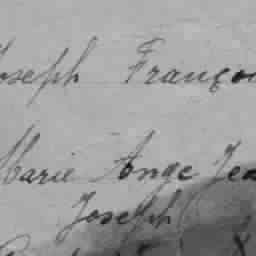 Joseph Françoi
Marie Ange Jea
Joseph